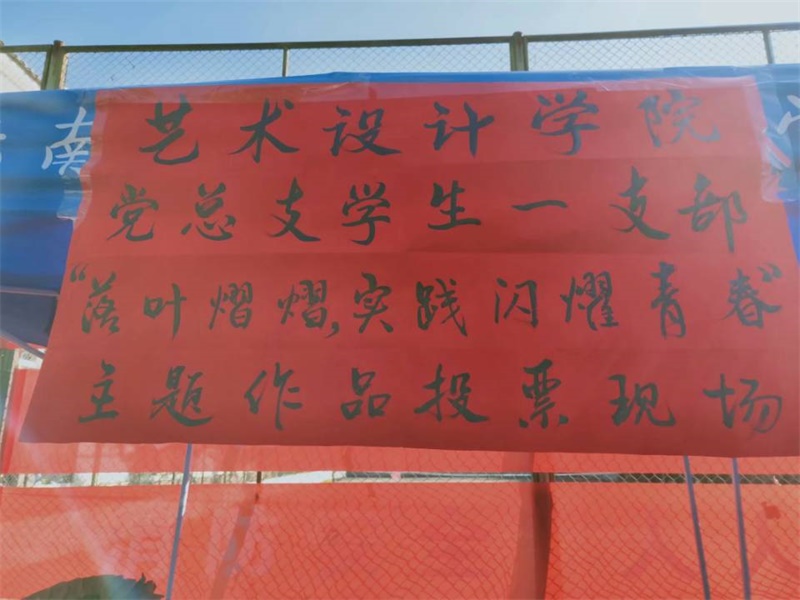 艺术设计学院
党总支学生一支部
“落叶熠熠,实践闪耀青春”
主题作品投票现场
南